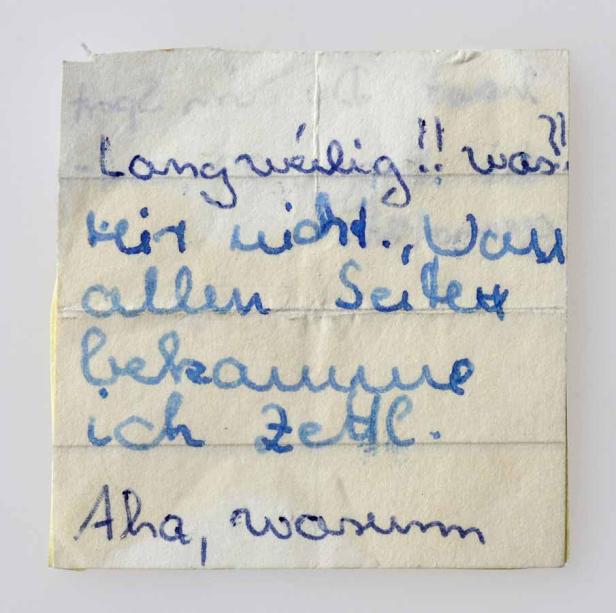 Langweilig!! was?!
Mir nicht. Von
allen Seiten
bekomme
ich Zettl.
Aha, warum